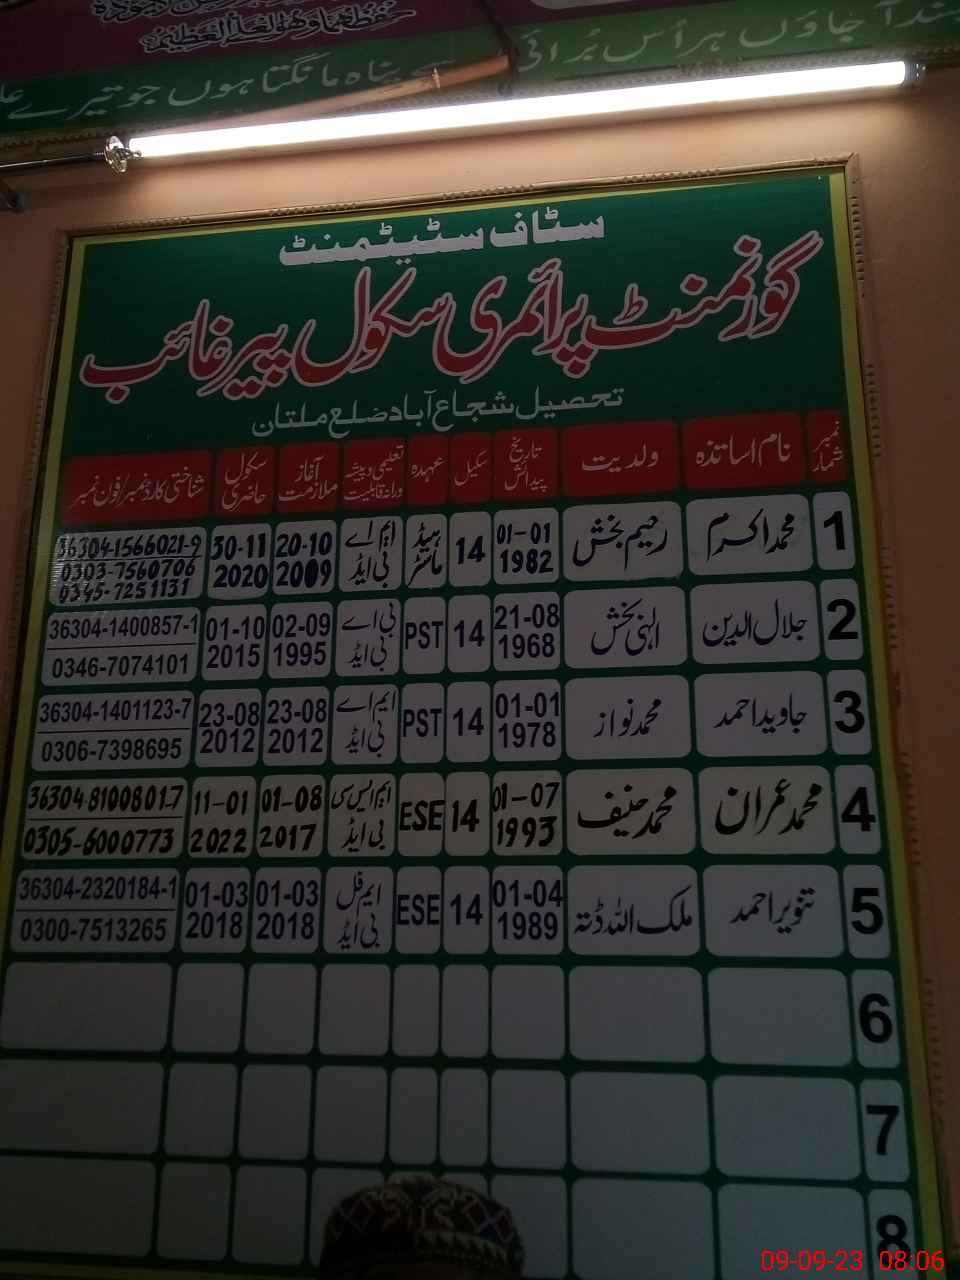 پناہ مانگتا ہوں جو تیرے
جاؤں ہر اُس بُرائی سے
سٹاف سٹیٹمنٹ
گورنمنٹ پرائمری سکول پیر غائب
تحصیل شجاع آباد ضلع ملتان
نمبر شمار نام اساتذہ ولدیت تاریخ پیدائش سکیل عہدہ تعلیمی و پیشہ ورانہ قابلیت آغاز ملازمت سکول حاضری شناختی کارڈ نمبر/فون نمبر
1 محمد اکرم رحیم بخش 01-01 1982 14 ہیڈ ماسٹر ایم اے بی ایڈ 20-10 2009 30-11 2020 36304-1566021-9 0303-7560706 0345-7251131
2 جلال الدین الہی بخش 21-08 1968 14 PST بی اے بی ایڈ 02-09 1995 01-10 2015 36304-1400857-1 0346-7074101
3 جاوید احمد محمد نواز 01-01 1978 14 PST ایم اے بی ایڈ 23-08 2012 23-08 2012 36304-1401123-7 0306-7398695
4 محمد عمران محمد حنیف 01-07 1993 14 ESE ایم ایس سی بی ایڈ 01-08 2017 11-01 2022 36304-8100801-7 0305-6000773
5 تنویر احمد ملک اللہ ڈتہ 01-04 1989 14 ESE ایم فل بی ایڈ 01-03 2018 01-03 2018 36304-2320184-1 0300-7513265
6
7
8
09-09-23 08:06